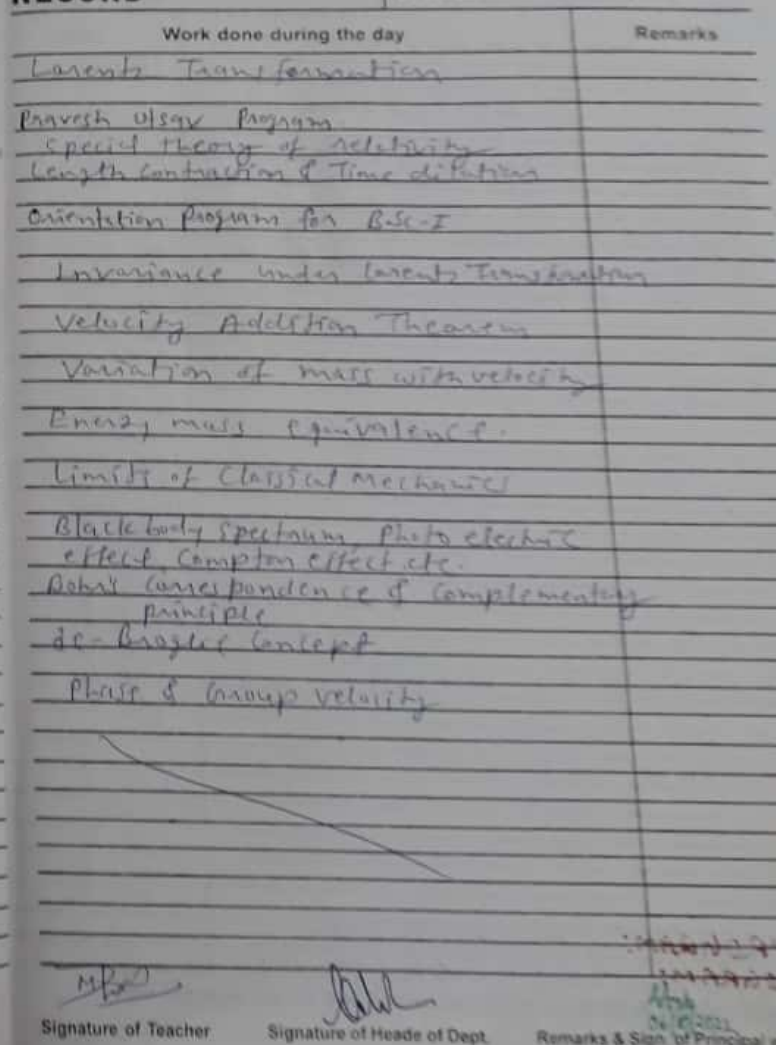 RECORD
Work done during the day
Remarks
Larentz Transformation
Pravesh utsav Program
Special theory of relativity
Length contraction & Time dilation
Orientation Program for B.Sc-I
Invariance under Larentz Transformation
Velocity Addition Theorem
Variation of mass with velocity
Energy mass equivalence.
Limits of Classical Mechanics
Black body spectrum, Photo electric
effect, Compton effect etc.
Bohr's Correspondence & Complementary
principle
de-Broglie Concept
Phase & Group velocity
Signature of Teacher
Signature of Heade of Dept.
Remarks & Sign. of Principal